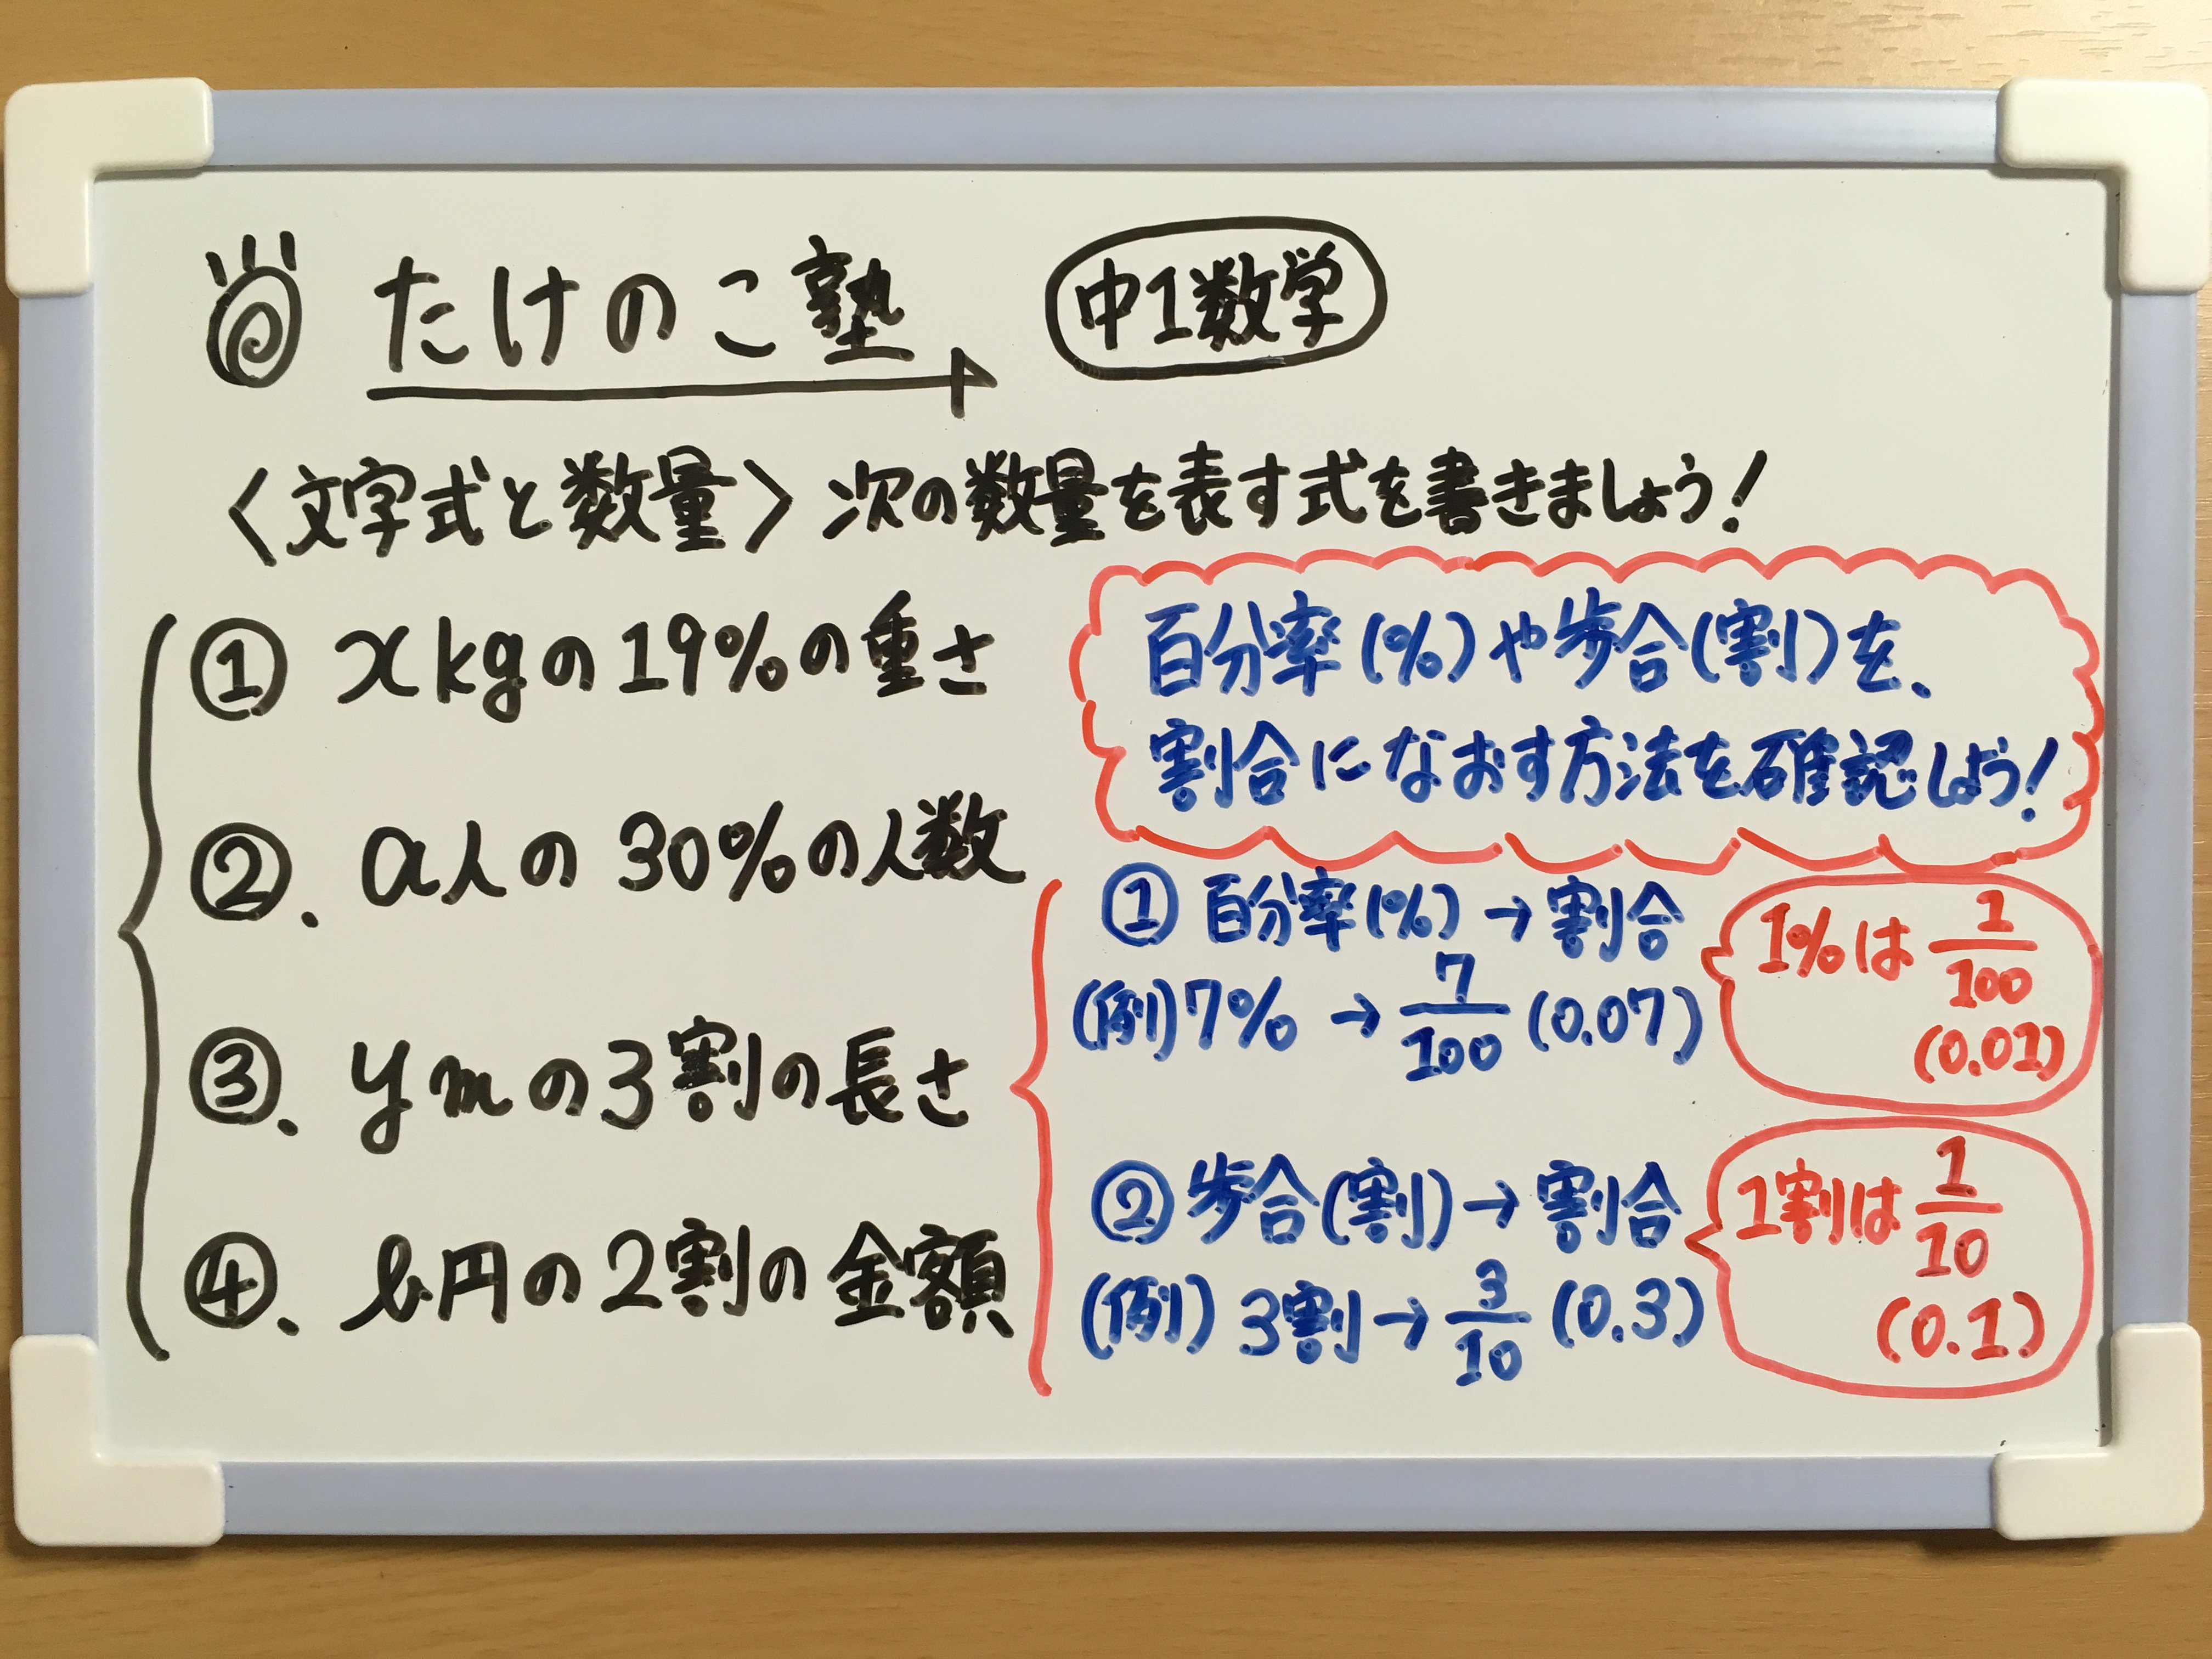 たけのこ塾 中1数学
〈文字式と数量〉次の数量を表す式を書きましょう!
① xkgの19%の重さ
②. a人の30%の人数
③. ymの3割の長さ
④. b円の2割の金額
百分率(%)や歩合(割)を、
割合になおす方法を確認しよう!
① 百分率(%)→割合
(例)7% → 7/100 (0.07)
1%は 1/100
(0.01)
② 歩合(割)→割合
(例) 3割→ 3/10 (0.3)
1割は 1/10
(0.1)